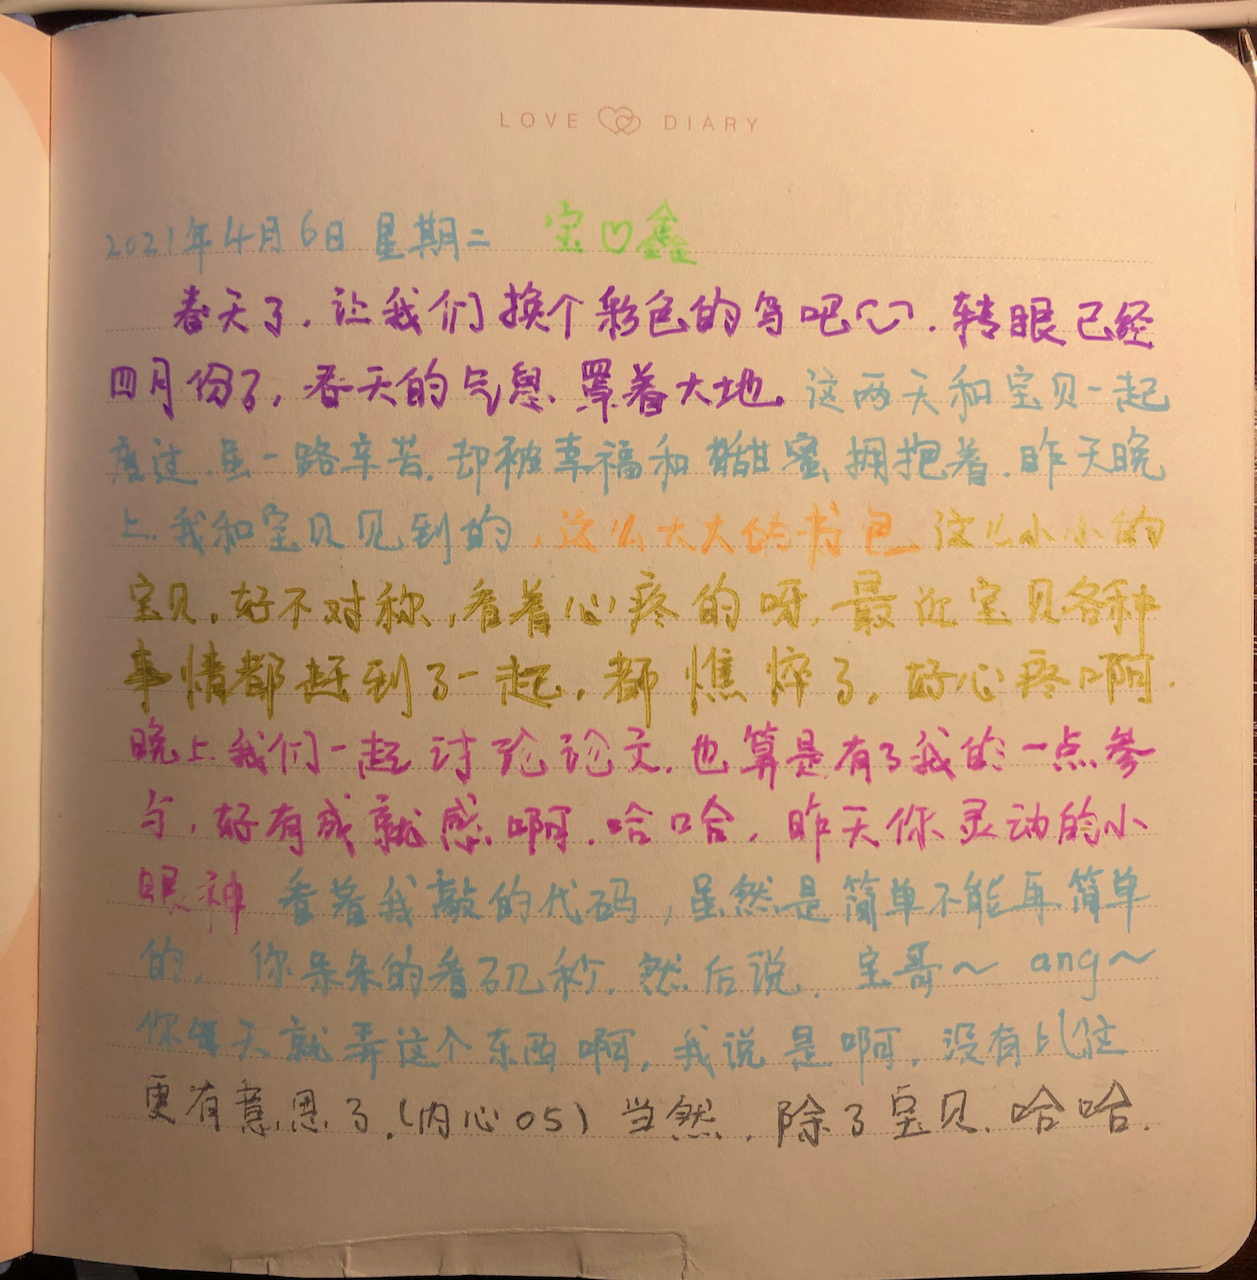 LOVE DIARY
2021年4月6日 星期二 宝♡鑫
春天了,让我们换个彩色的写吧,转眼已经
四月份了,春天的气息罩着大地.这两天和宝贝一起
度过.虽一路辛苦,却被幸福和甜蜜拥抱着.昨天晚
上.我和宝贝见到的,这么大大的书包 这么小小的
宝贝,好不对称,看着心疼的呀.最近宝贝各种
事情都赶到了一起,都憔悴了,好心疼啊.
晚上我们一起讨论论文.也算是有了我的一点参
与,好有成就感啊.哈哈,昨天你灵动的小
眼神 看着我敲的代码,虽然是简单不能再简单
的,你呆呆的看了几秒.然后说.宝哥~ ang~
你每天就弄这个东西啊,我说是啊,没有比
更有意思了.(内心OS)当然,除了宝贝.哈哈.